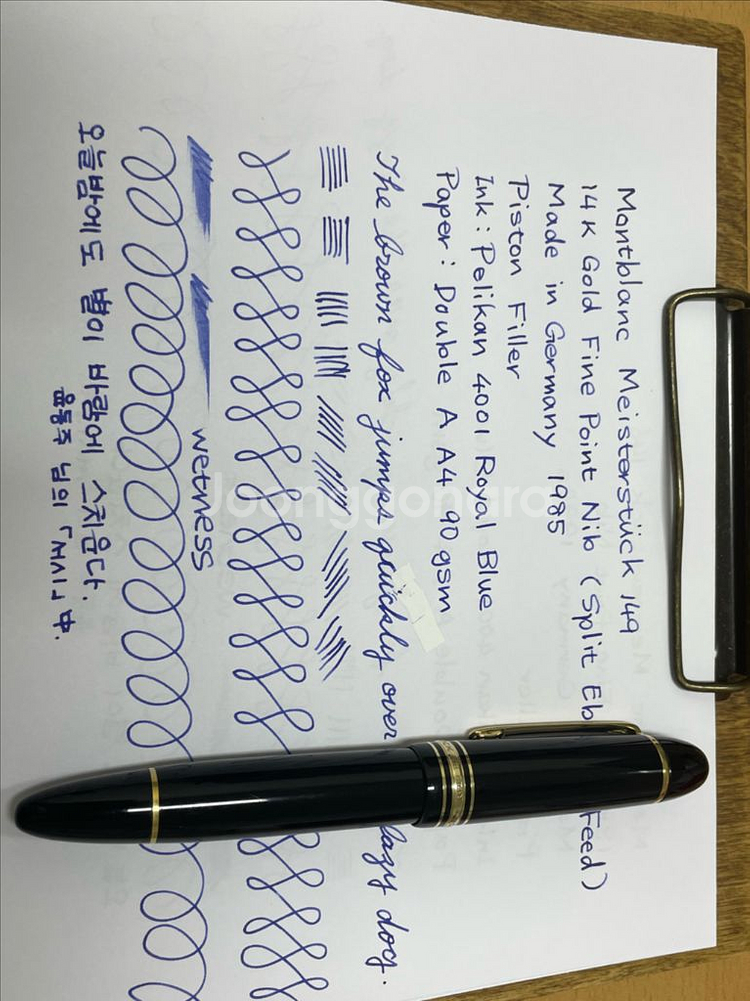 Montblanc Meisterstück 149
14K Gold Fine Point Nib (Split Eb Feed)
Made in Germany 1985
Piston Filler
Ink : Pelikan 4001 Royal Blue
Paper : Double A A4 90 gsm
The brown fox jumps quickly over lazy dog.
wetness
오늘밤에도 별이 바람에 스치운다.
윤동주 님의 「서시」 中.
Joonggonara